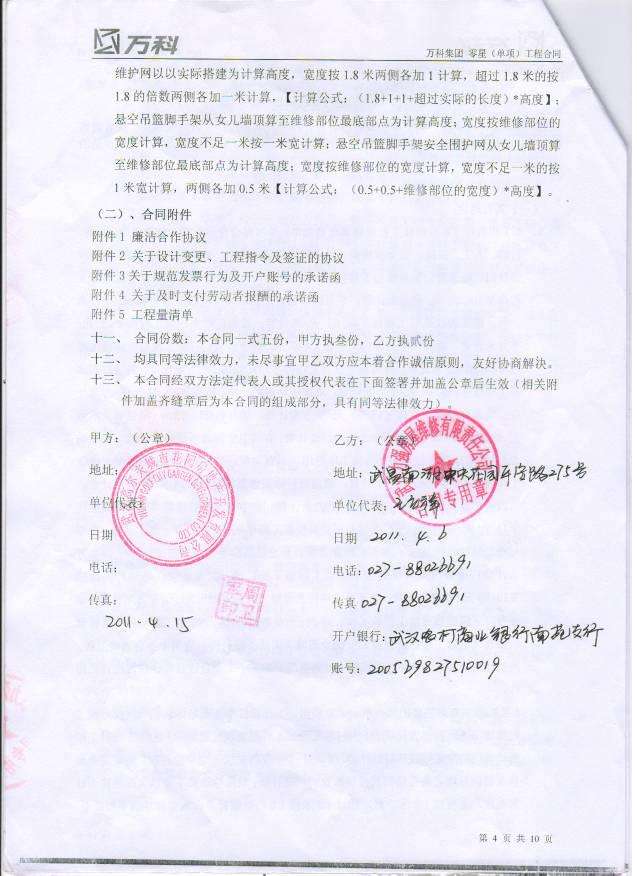 万科
万科集团 零星（单项）工程合同
维护网以以实际搭建为计算高度，宽度按 1.8 米两侧各加 1 计算，超过 1.8 米的按
1.8 的倍数两侧各加一米计算，【计算公式：（1.8+1+1+超过实际的长度）*高度】；
悬空吊篮脚手架从女儿墙顶算至维修部位最底部点为计算高度；宽度按维修部位的
宽度计算，宽度不足一米按一米宽计算；悬空吊篮脚手架安全围护网从女儿墙顶算
至维修部位最底部点为计算高度；宽度按维修部位的宽度计算，宽度不足一米的按
1 米宽计算，两侧各加 0.5 米【计算公式：（0.5+0.5+维修部位的宽度）*高度】。
（二）、合同附件
附件 1 廉洁合作协议
附件 2 关于设计变更、工程指令及签证的协议
附件 3 关于规范发票行为及开户账号的承诺函
附件 4 关于及时支付劳动者报酬的承诺函
附件 5 工程量清单
十一、 合同份数：本合同一式五份，甲方执叁份，乙方执贰份
十二、 均具同等法律效力，未尽事宜甲乙双方应本着合作诚信原则，友好协商解决。
十三、 本合同经双方法定代表人或其授权代表在下面签署并加盖公章后生效（相关附
件加盖齐缝章后为本合同的组成部分，具有同等法律效力）。
甲方：（公章）
地址：
单位代表：
日期
电话：
传真：
2011.4.15
乙方：（公章）
地址：武昌南湖 花园 275号
单位代表：
日期 2011.4.6
电话：027-88026691
传真 027-88026691
开户银行：武汉农村商业银行南苑支行
账号：200569827510019
维修有限责任公司
合同专用章
第 4 页 共 10 页